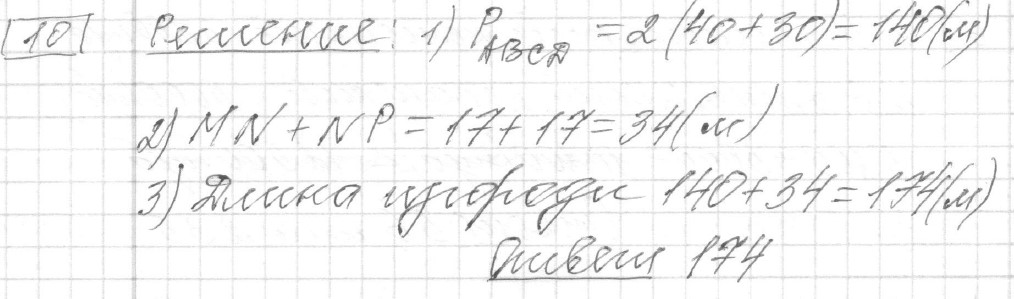 10 Решение: 1) P_ABCD = 2(40+30) = 140(м)
2) MN + NP = 17+17 = 34(м)
3) Длина 140+34 = 174(м)
Ответ 174